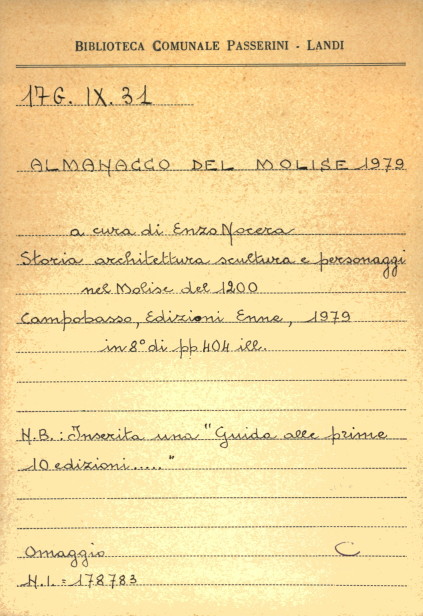 BIBLIOTECA COMUNALE PASSERINI - LANDI
17G. IX. 31
ALMANACCO DEL MOLISE 1979
a cura di Enzo Nocera
Storia architettura scultura e personaggi
nel Molise del 1200
Campobasso, Edizioni Enne, 1979
in 8° di pp 404 ill.
N.B.: Inserita una "Guida alle prime
10 edizioni....."
Omaggio C
N.I. = 178783